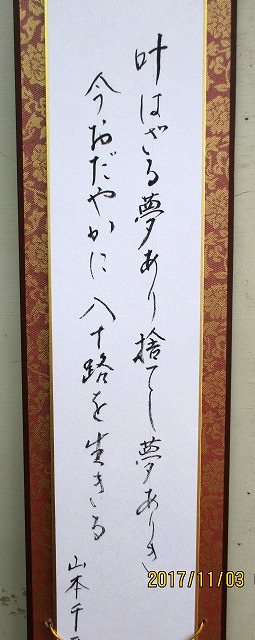 叶はざる夢あり捨てし夢ありき
今おだやかに八十路を生きゐる
山本千
2017/11/03